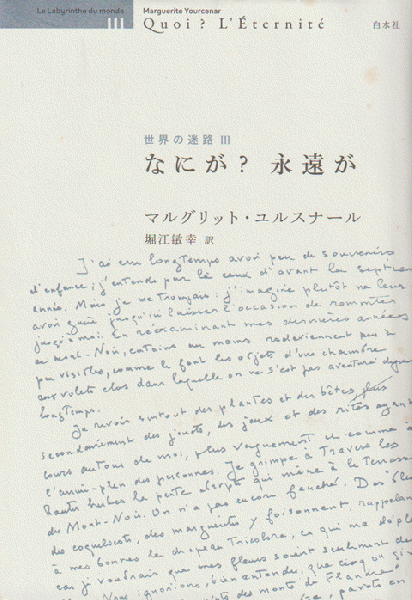 Le Labyrinthe du monde
III
Marguerite Yourcenar
Quoi? L'Éternité
白水社
世界の迷路 III
なにが? 永遠が
マルグリット・ユルスナール
堀江敏幸 訳
J'ai cru longtemps avoir peu de souvenirs
d'enfance; j'entends par là ceux d'avant la septième
année. Mais je me trompais: j'imagine plutôt ne leur
avoir guère jusqu'ici laissé l'occasion de remonter
jusqu'à moi. En réexaminant mes dernières années
au Mont-Noir, certains au moins redeviennent peu à
peu visibles, comme le font les objets d'une chambre
aux volets clos dans laquelle on ne s'est pas aventuré depuis
longtemps.
Je revois surtout des plantes et des bêtes, plus
secondairement des jouets, des jeux et des rites ayant
cours autour de moi, plus vaguement et comme à
l'arrière-plan des personnes. Je grimpe à travers les
hautes herbes la pente abrupte qui mène à la terrasse
du Mont-Noir. On n'a pas encore fauché. Des
des coquelicots, des marguerites y foisonnent, rappelant
à mes bonnes le drapeau tricolore, ce qui me déplaît
car je voudrais que mes fleurs soient seulement des